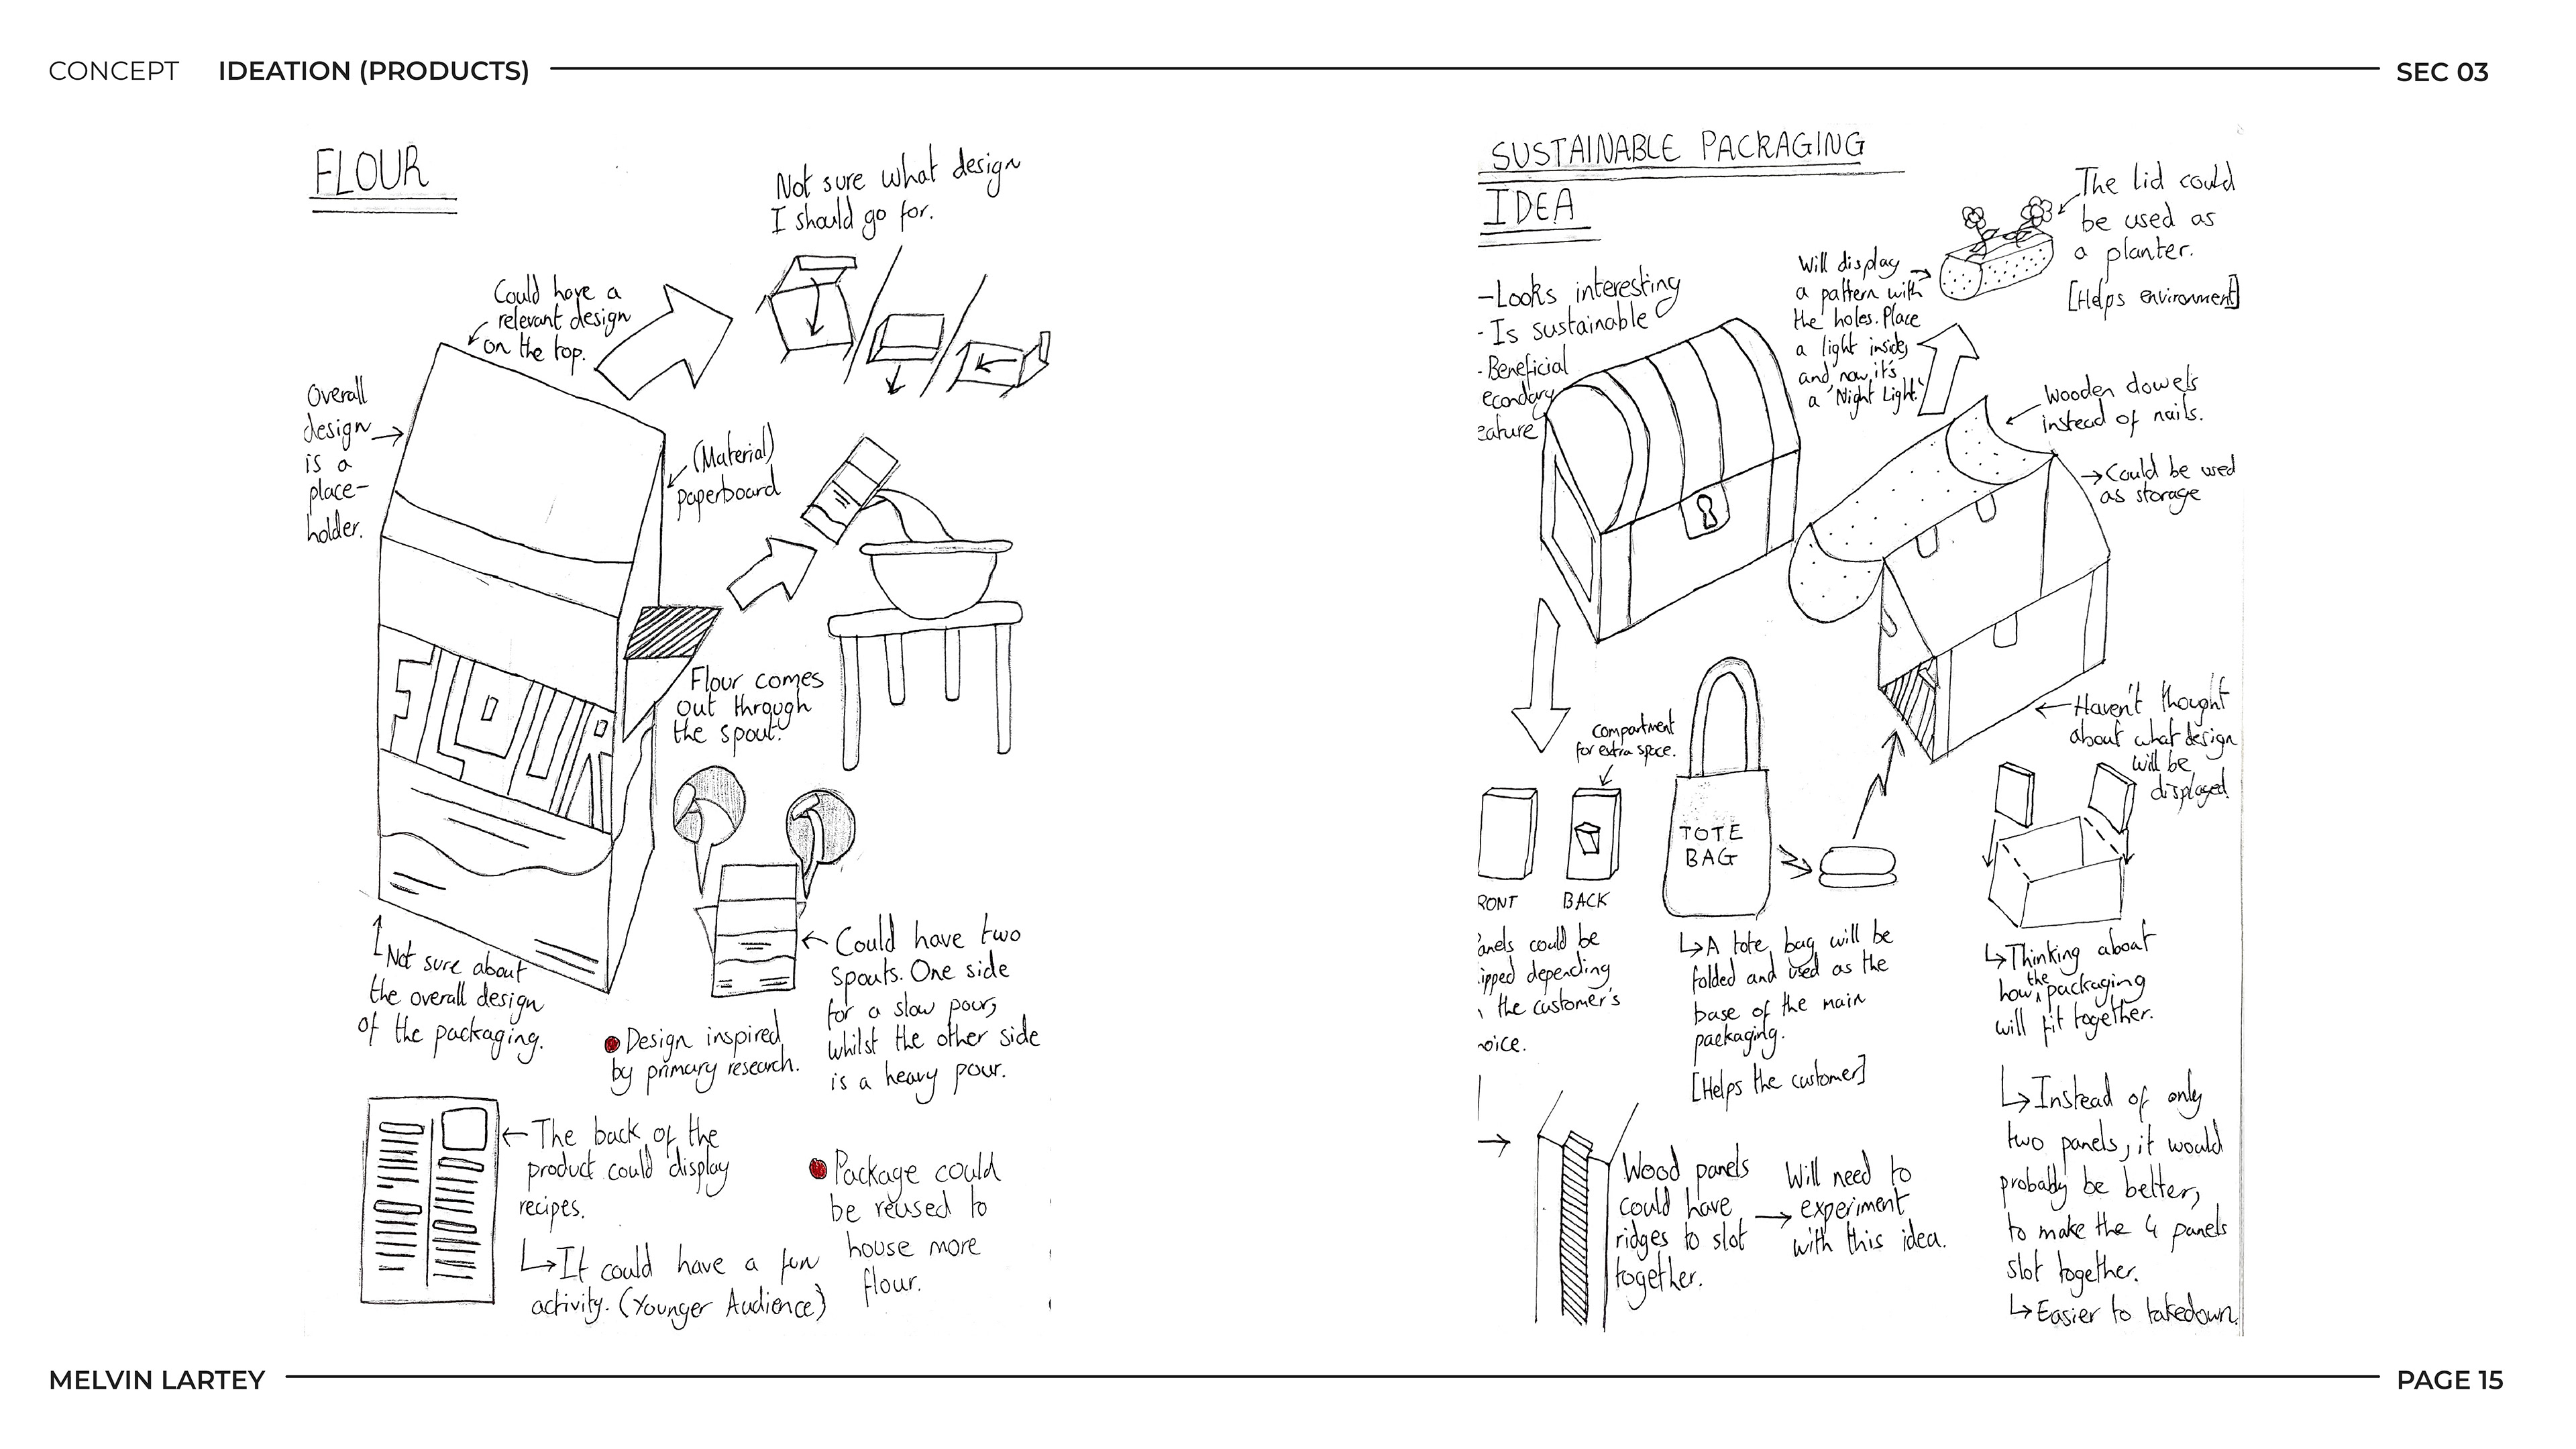 CONCEPT IDEATION (PRODUCTS)
SEC 03
FLOUR
Not sure what design
I should go for.
Could have a
relevant design
on the top.
Overall
design
is a
place-
holder.
(Material)
paperboard
FLOUR
Flour comes
out through
the spout.
Not sure about
the overall design
of the packaging.
Could have two
spouts. One side
for a slow pour,
whilst the other side
is a heavy pour.
Design inspired
by primary research.
The back of the
product could display
recipes.
It could have a fun
activity. (Younger Audience)
Package could
be reused to
house more
flour.
SUSTAINABLE PACKAGING
IDEA
-Looks interesting
- Is sustainable
- Beneficial
econdary
eature
The lid could
be used as
a planter.
[Helps environment]
Will display
a pattern with
the holes. Place
a light inside,
and now, it's
a 'Night Light.'
Wooden dowels
instead of nails.
Could be used
as storage
Haven't thought
about what design
will be
displayed.
Compartment
for extra space.
RONT
BACK
anels could be
ipped depending
the customer's
oice.
TOTE
BAG
A tote bag will be
folded and used as the
base of the main
packaging.
[Helps the customer]
Thinking about
how the packaging
will fit together.
Instead of only
two panels, it would
probably be better,
to make the 4 panels
slot together.
Easier to takedown.
Wood panels
could have
ridges to slot
together.
Will need to
experiment
with this idea.
MELVIN LARTEY
PAGE 15